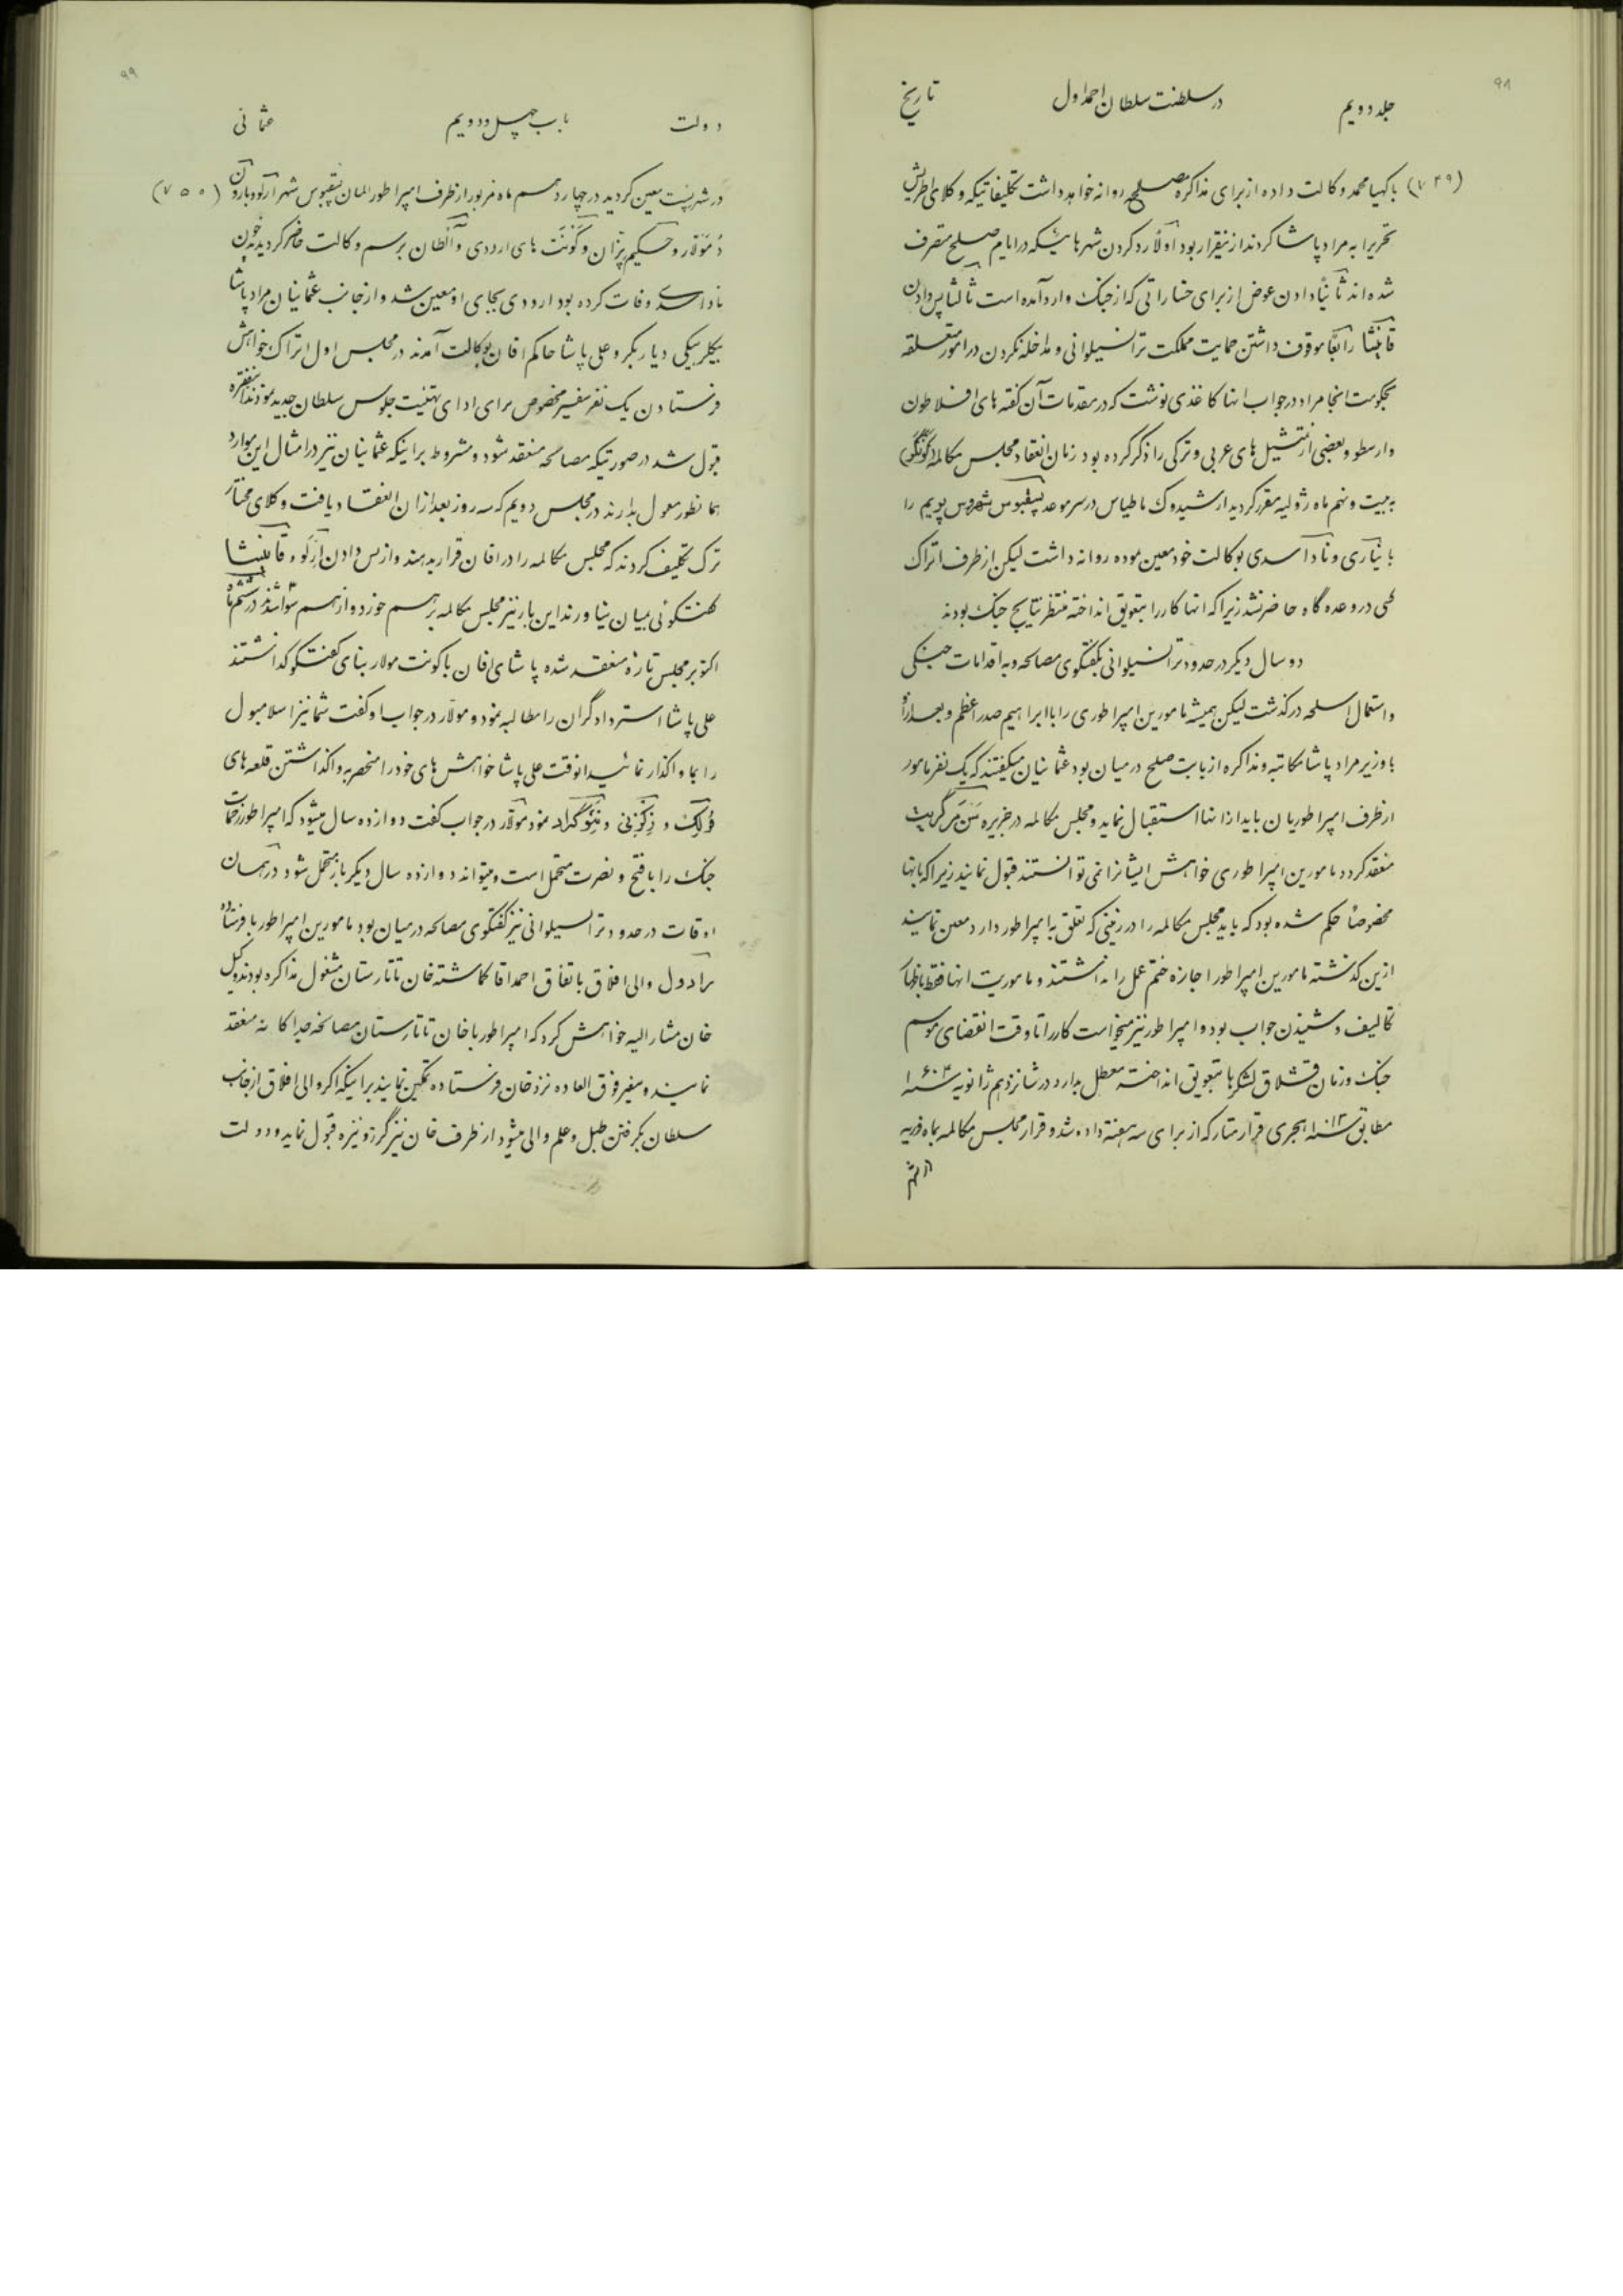 ۹۸
جلد دویم در سلطنت سلطان احمد اول تاریخ
(۷۴۹) با کهیا محمد وکالت داده از برای مذاکره مصلح روانه خواهد داشت تکلیفاتیکه وکلای اطریش
تحریرا به مراد پاشا کردند ازینقرار بود اولاً رد کردن شهرهائیکه در ایام صلح متصرف
شده‌اند ثانیاً دادن عوض از برای خساراتی که از جنک وارد آمده است ثالثا پس دادن
قانیشا رابعاً موقوف داشتن حمایت مملکت ترانسیلوانی و مداخله نکردن در امور متعلقه
بحکومت انجا مراد در جواب انها کاغذی نوشت که در مقدمات آن گفته های افلاطون
و ارسطو و بعضی از تمثیل های عربی و ترکی را ذکر کرده بود زمان انعقاد مجلس مکالمه
به بیست و نهم ماه ژولیه مقرر کردید ارشیدوک ماطیاس در سر موعد پیقبوس شهر دس پریم را
با نیاری و ناداسدی بوکالت خود معین نموده روانه داشت لیکن از طرف اتراک
کسی در وعده گاه حاضر نشد زیرا که انها کار را بتعویق انداخته منتظر نتایج جنک بودند
دو سال دیکر در حدود ترانسیلوانی بکفتکوی مصالحه و به اقدامات جنکی
و استعمال اسلحه در کذشت لیکن همیشه مامورین امپراطوری را با ابراهیم صدر اعظم و بعد ازو
با وزیر مراد پاشا مکاتبه و مذاکره از بابت صلح در میان بود عثمانیان میکفتند که یک نفر مامور
از طرف امپراطوریان باید از انها استقبال نماید و مجلس مکالمه در جزیره سن مرگریت
منعقد کردد مامورین امپراطوری خواهش ایشانرا نمی توانستند قبول نمایند زیرا که بانها
مخصوصاً حکم شده بود که باید مجلس مکالمه را در زمینی که تعلق به امپراطور دارد معین نمایند
ازین کذشته مامورین امپراطور اجازه ختم عمل را نداشتند و ماموریت انها فقط باظهار
تکالیف و شنیدن جواب بود و امپراطور نیز میخواست کار را تا وقت انقضای موسم
جنک و زمان قشلاق لشکرها بتعویق انداخته معطل بدارد در شانزدهم ژانویه سنه ۱۶۰۴
مطابق سنه ۱۰۱۳ هجری قرار متارکه از برای سه هفته داده شد و قرار مجلس مکالمه بماه فوریه
۹۹
دولت باب چهل و دویم عثمانی
در شهر پست معین کردید در چهاردهم ماه مزبور از طرف امپراطور المان پیقبوس شهر ارلو و بارون (۷۵۰)
دُ مُوّلار و حکیم پزان و کُونت های اروددی و آلطان برسم وکالت حاضر کردیدند چون
ناداسدی وفات کرده بود ارددی بجای او معین شد و از جانب عثمانیان مراد پاشا
بیکلربیکی دیاربکر و علی پاشا حاکم افان بوکالت آمدند در مجلس اول اتراک خواهش
فرستادن یک نفر سفیر مخصوص برای ادای تهنیت جلوس سلطان جدید نمودند اینفقره
قبول شد در صورتیکه مصالحه منعقد شود و مشروط بر اینکه عثمانیان نیز در امثال این موارد
همانطور معمول بدارند در مجلس دویم که سه روز بعد از ان انعقاد یافت وکلای مختار
ترک تکلیف کردند که مجلس مکالمه را در افان قرار بدهند و از پس دادن ارلو و قانیشا
کفتکوئی بمیان نیاورند این بار نیز مجلس مکالمه بر هم خورد و از هم سوا شدند در ششم ماه
اکتوبر مجلس تازهٔ منعقد شده پاشای افان با کونت مولار بنای کفتکو کذاشتند
علی پاشا استرداد گران را مطالبه نمود و مولار در جواب او کفت شما نیز اسلامبول
را بما واکذار نمائید انوقت علی پاشا خواهش های خود را منحصر به واکذاشتن قلعه های
فُولک و زِکُزنی و نئوگراد نمود مولار در جواب کفت دوازده سال میشود که امپراطور زحمات
جنک را با فتح و نصرت متحمل است و میتواند دوازده سال دیکر باز متحمل شود در همان
اوقات در حدود ترانسیلوانی نیز کفتکوی مصالحه در میان بود مامورین امپراطور با فرستاده
رادول والی افلاق باتفاق احمد اقا کماشته خان تاتارستان مشغول مذاکره بودند وکیل
خان مشارالیه خواهش کرد که امپراطور با خان تاتارستان مصالحه جداکانه منعقد
نمایند و سفیر فوق العاده نزد خان فرستاده تمکین نمایند بر اینکه اکر والی افلاق از جانب
سلطان بکرفتن طبل و علم والی میشود از طرف خان نیز گرز و نیزه قبول نماید و دولت